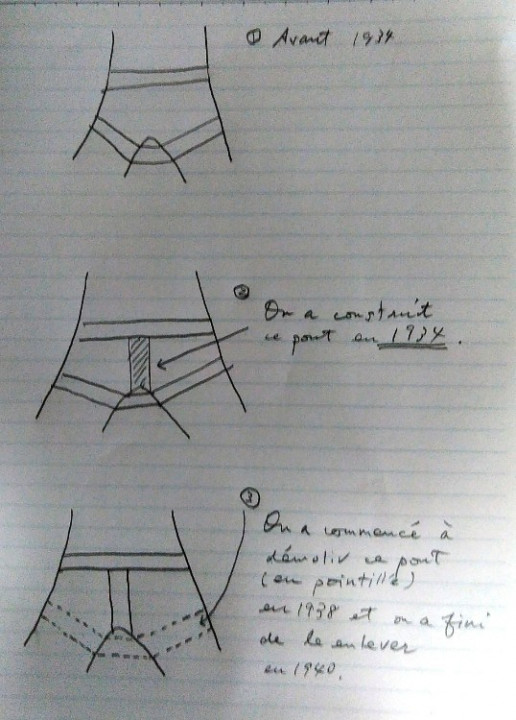 ① Avant 1934
② On a construit
ce pont en 1934.
③ On a commencé à
démolir ce pont
(en pointillé)
en 1938 et on a fini
de le enlever
en 1940.